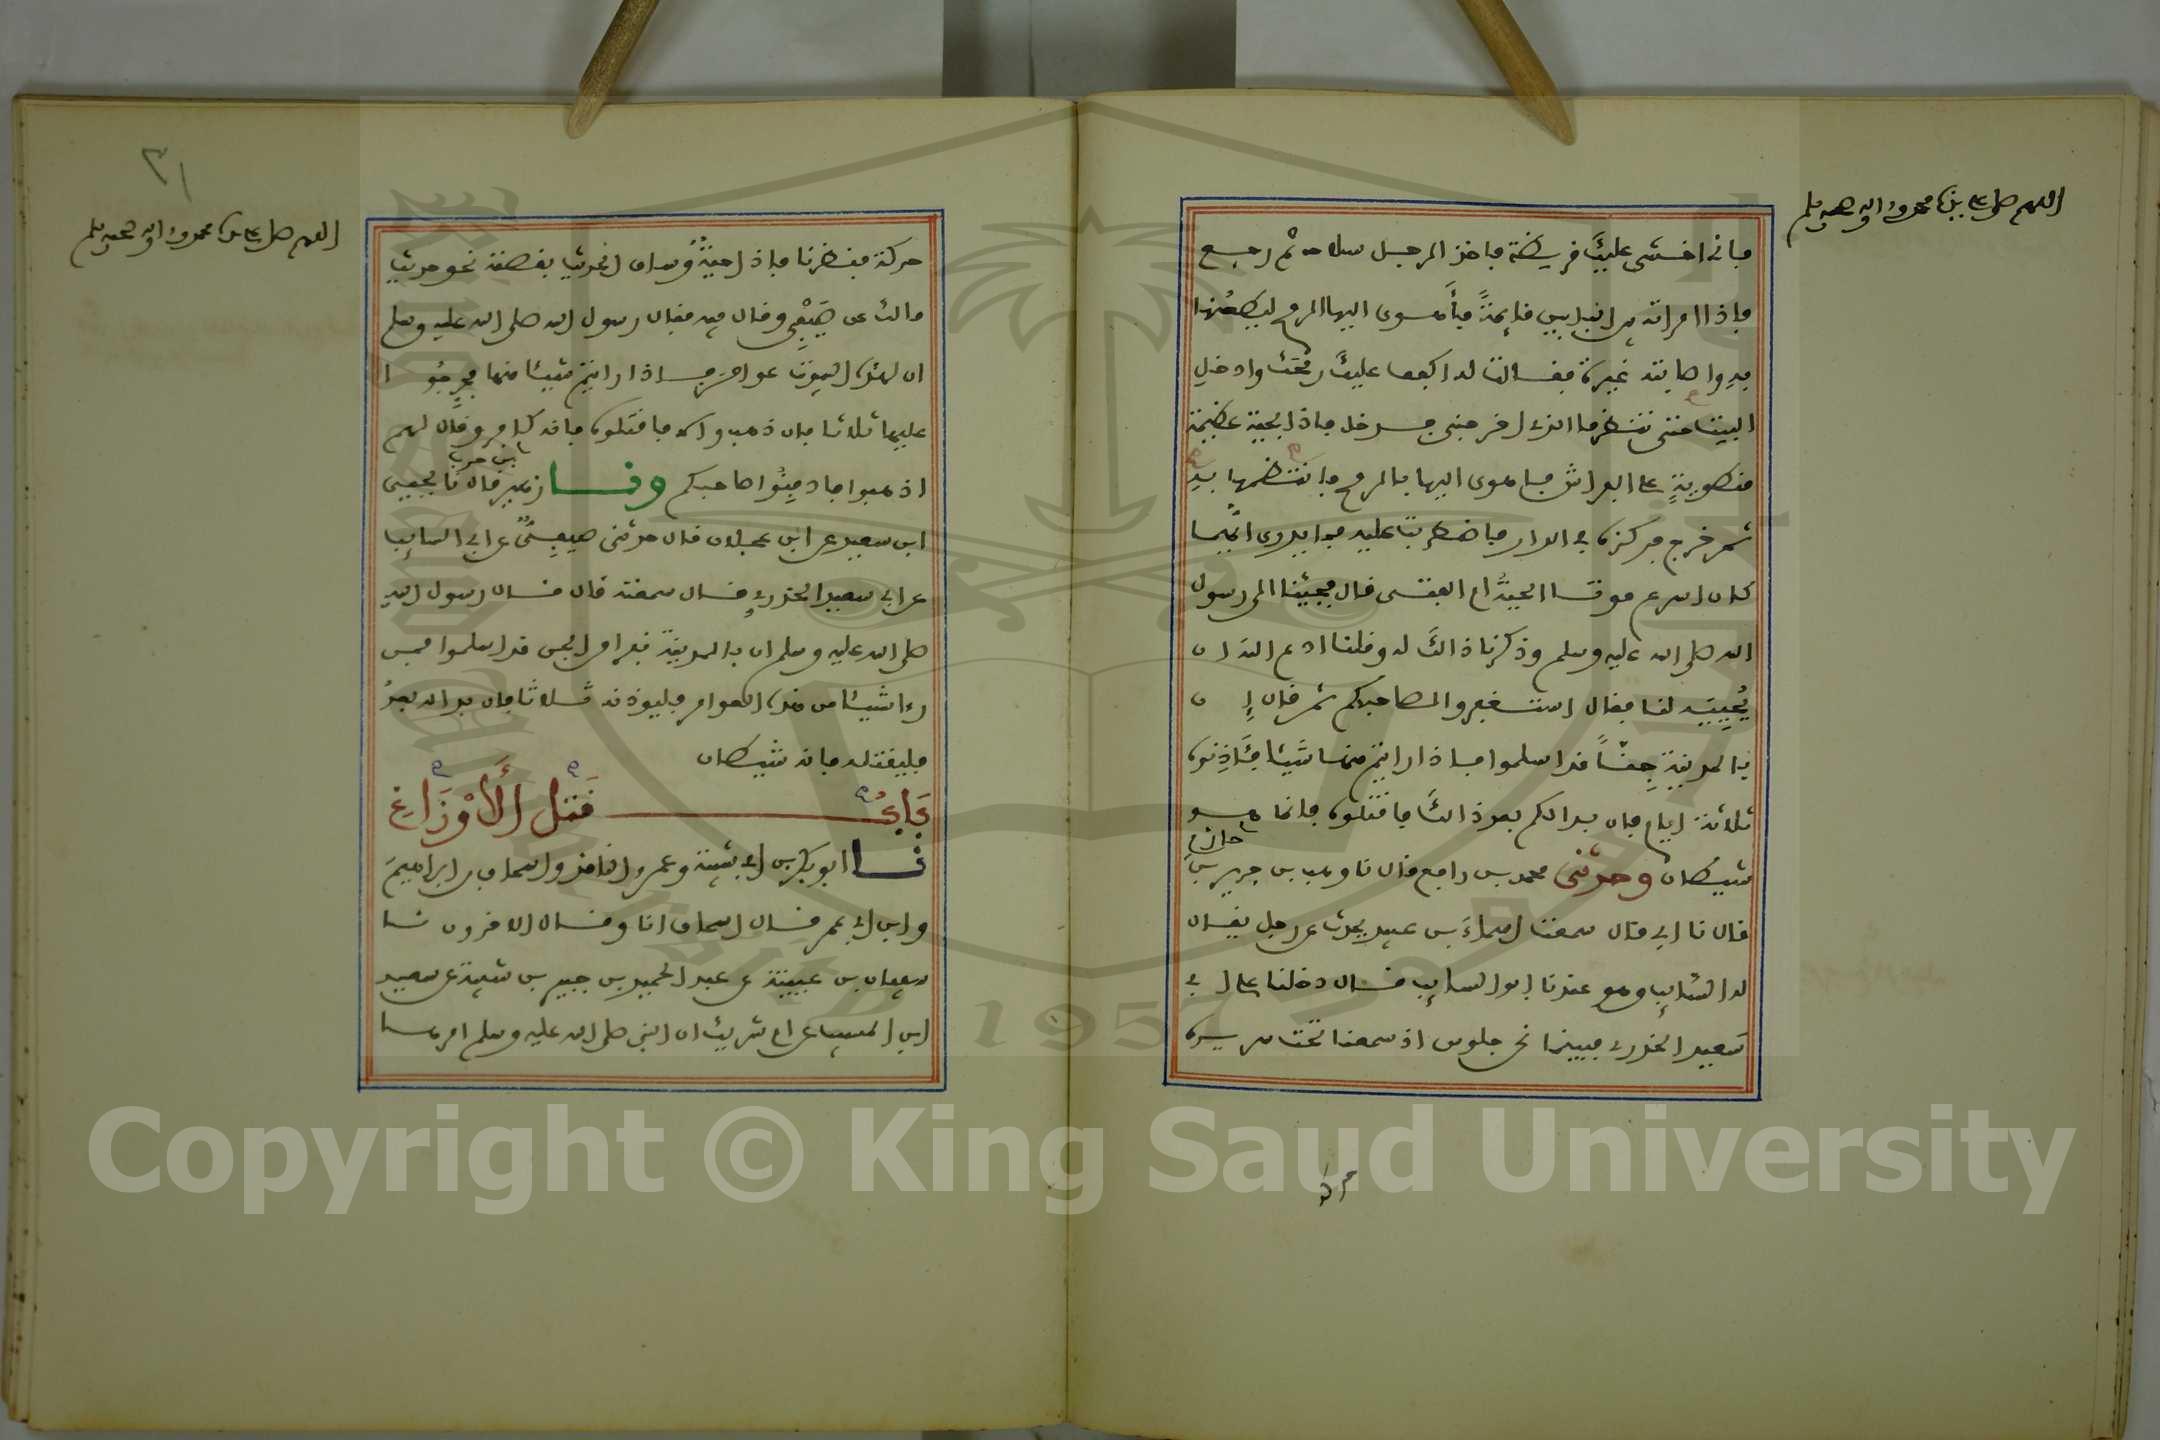 اللهم صل على نبينا محمد وءاله وصحبه وسلم
فانى اخشى عليك فريظة فاخذ الرجل سلاحه ثم رجع
فاذا امراته بين البابين قايمة فأهوى اليها الرمح ليطعنها
به واصابته غيرة فقالت له اكفف عليك رمحك وادخل
البيت حتى تنظر ما الذى اخرجنى فدخل فاذا بحية عظيمة
منطوية على الفراش فاهوى اليها بالرمح فانتظمها به
ثم خرج فركزه فى الدار فاضطربت عليه فما يدرى ايهما
كان اسرع موتا الحية ام الفتى قال فجئنا الى رسول
الله صلى الله عليه وسلم وذكرنا ذلك له وقلنا ادع الله ان
يحييه لنا فقال استغفروا لصاحبكم ثم قال إن
بالمدينة جنًا قد اسلموا فاذا رايتم منها شيئا فئاذنوه
ثلاثة ايام فان بدا لكم بعد ذلك فاقتلوه فانما هو
شيطان وحدثنى محمد بن رافع قال نا وهب بن جرير بن
حازم
قال نا ابى قال سمعت اسماء بن عبيد يحدث عن رجل يقال
له السايب وهو عندنا ابو السايب قال دخلنا على ابى
سعيد الخدرى فبينما نحن جلوس اذ سمعنا تحت سريره
حركة
٣١
اللهم صل على نبينا محمد وءاله وصحبه وسلم
حركة فنظرنا فاذا حية وساق الحديث بقصته نحو حديث
مالك عن صيفى وقال فيه فقال رسول الله صلى الله عليه وسلم
ان لهذه البيوت عوامر فاذا رايتم شيئا منها فحرجوا
عليها ثلاثا فان ذهب والا فاقتلوه فانه كافر وقال لهم
اذهبوا فادفنوا صاحبكم ونا زهير قال نا يحيى
بن حرب
ابن سعيد عن ابن عجلان قال حدثنى صيفى عن ابى السايب
عن ابى سعيد الخدرى قال سمعته قال قال رسول الله
صلى الله عليه وسلم ان بالمدينة نفرا من الجن قد اسلموا فمن
رءا شيئا من هذه العوامر فليوذنه ثلاثا فان بدا له بعد
فليقتله فانه شيطان
باب قتل الأوزاغ
نا ابو بكر بن ابى شيبة وعمرو الناقد واسحاق بن ابراهيم
وابن ابى عمر قال اسحاق انا وقال الاخرون نا
سفيان بن عيينة عن عبد الحميد بن جبير بن شيبة عن سعيد
ابن المسيب عن ام شريك ان النبى صلى الله عليه وسلم امرها
Copyright © King Saud University
1957